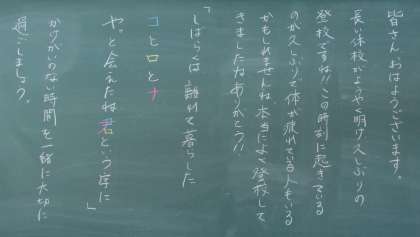 皆さんおはようございます。
長い休校がようやく明け久しぶりの
登校ですね!この時刻に起きている
のが久しぶりで体が疲れている人もいる
かもしれませんね。本当によく登校して
きましたね。ありがとう!!
「しばらくは 離れて暮らした
コとロとナ
やっと会えたね君という字に」
かけがいのない時間を一緒に大切に
過ごしましょう。